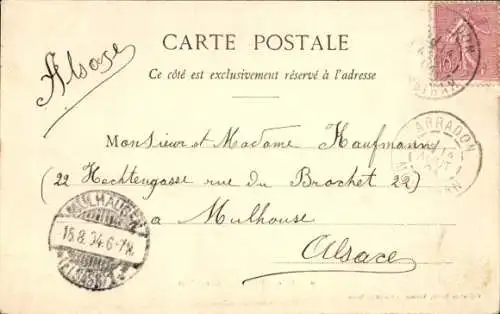 Alsace
CARTE POSTALE
Ce côté est exclusivement réservé à l'adresse
Monsieur et Madame Kaufmann
(22 Hechtengasse rue du Brochet 22)
a Mulhouse
Alsace
ARRADON
MÜLHAUSEN
15.8.04.6-7N.